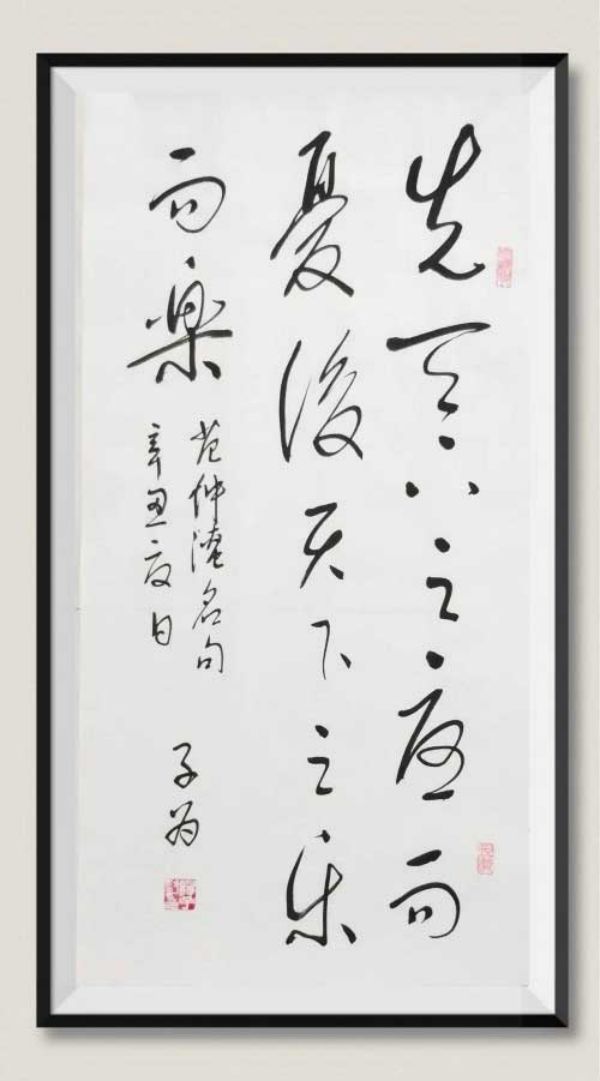 先天下之憂而
憂後天下之乐
而樂
范仲淹名句
辛丑夏日
子为